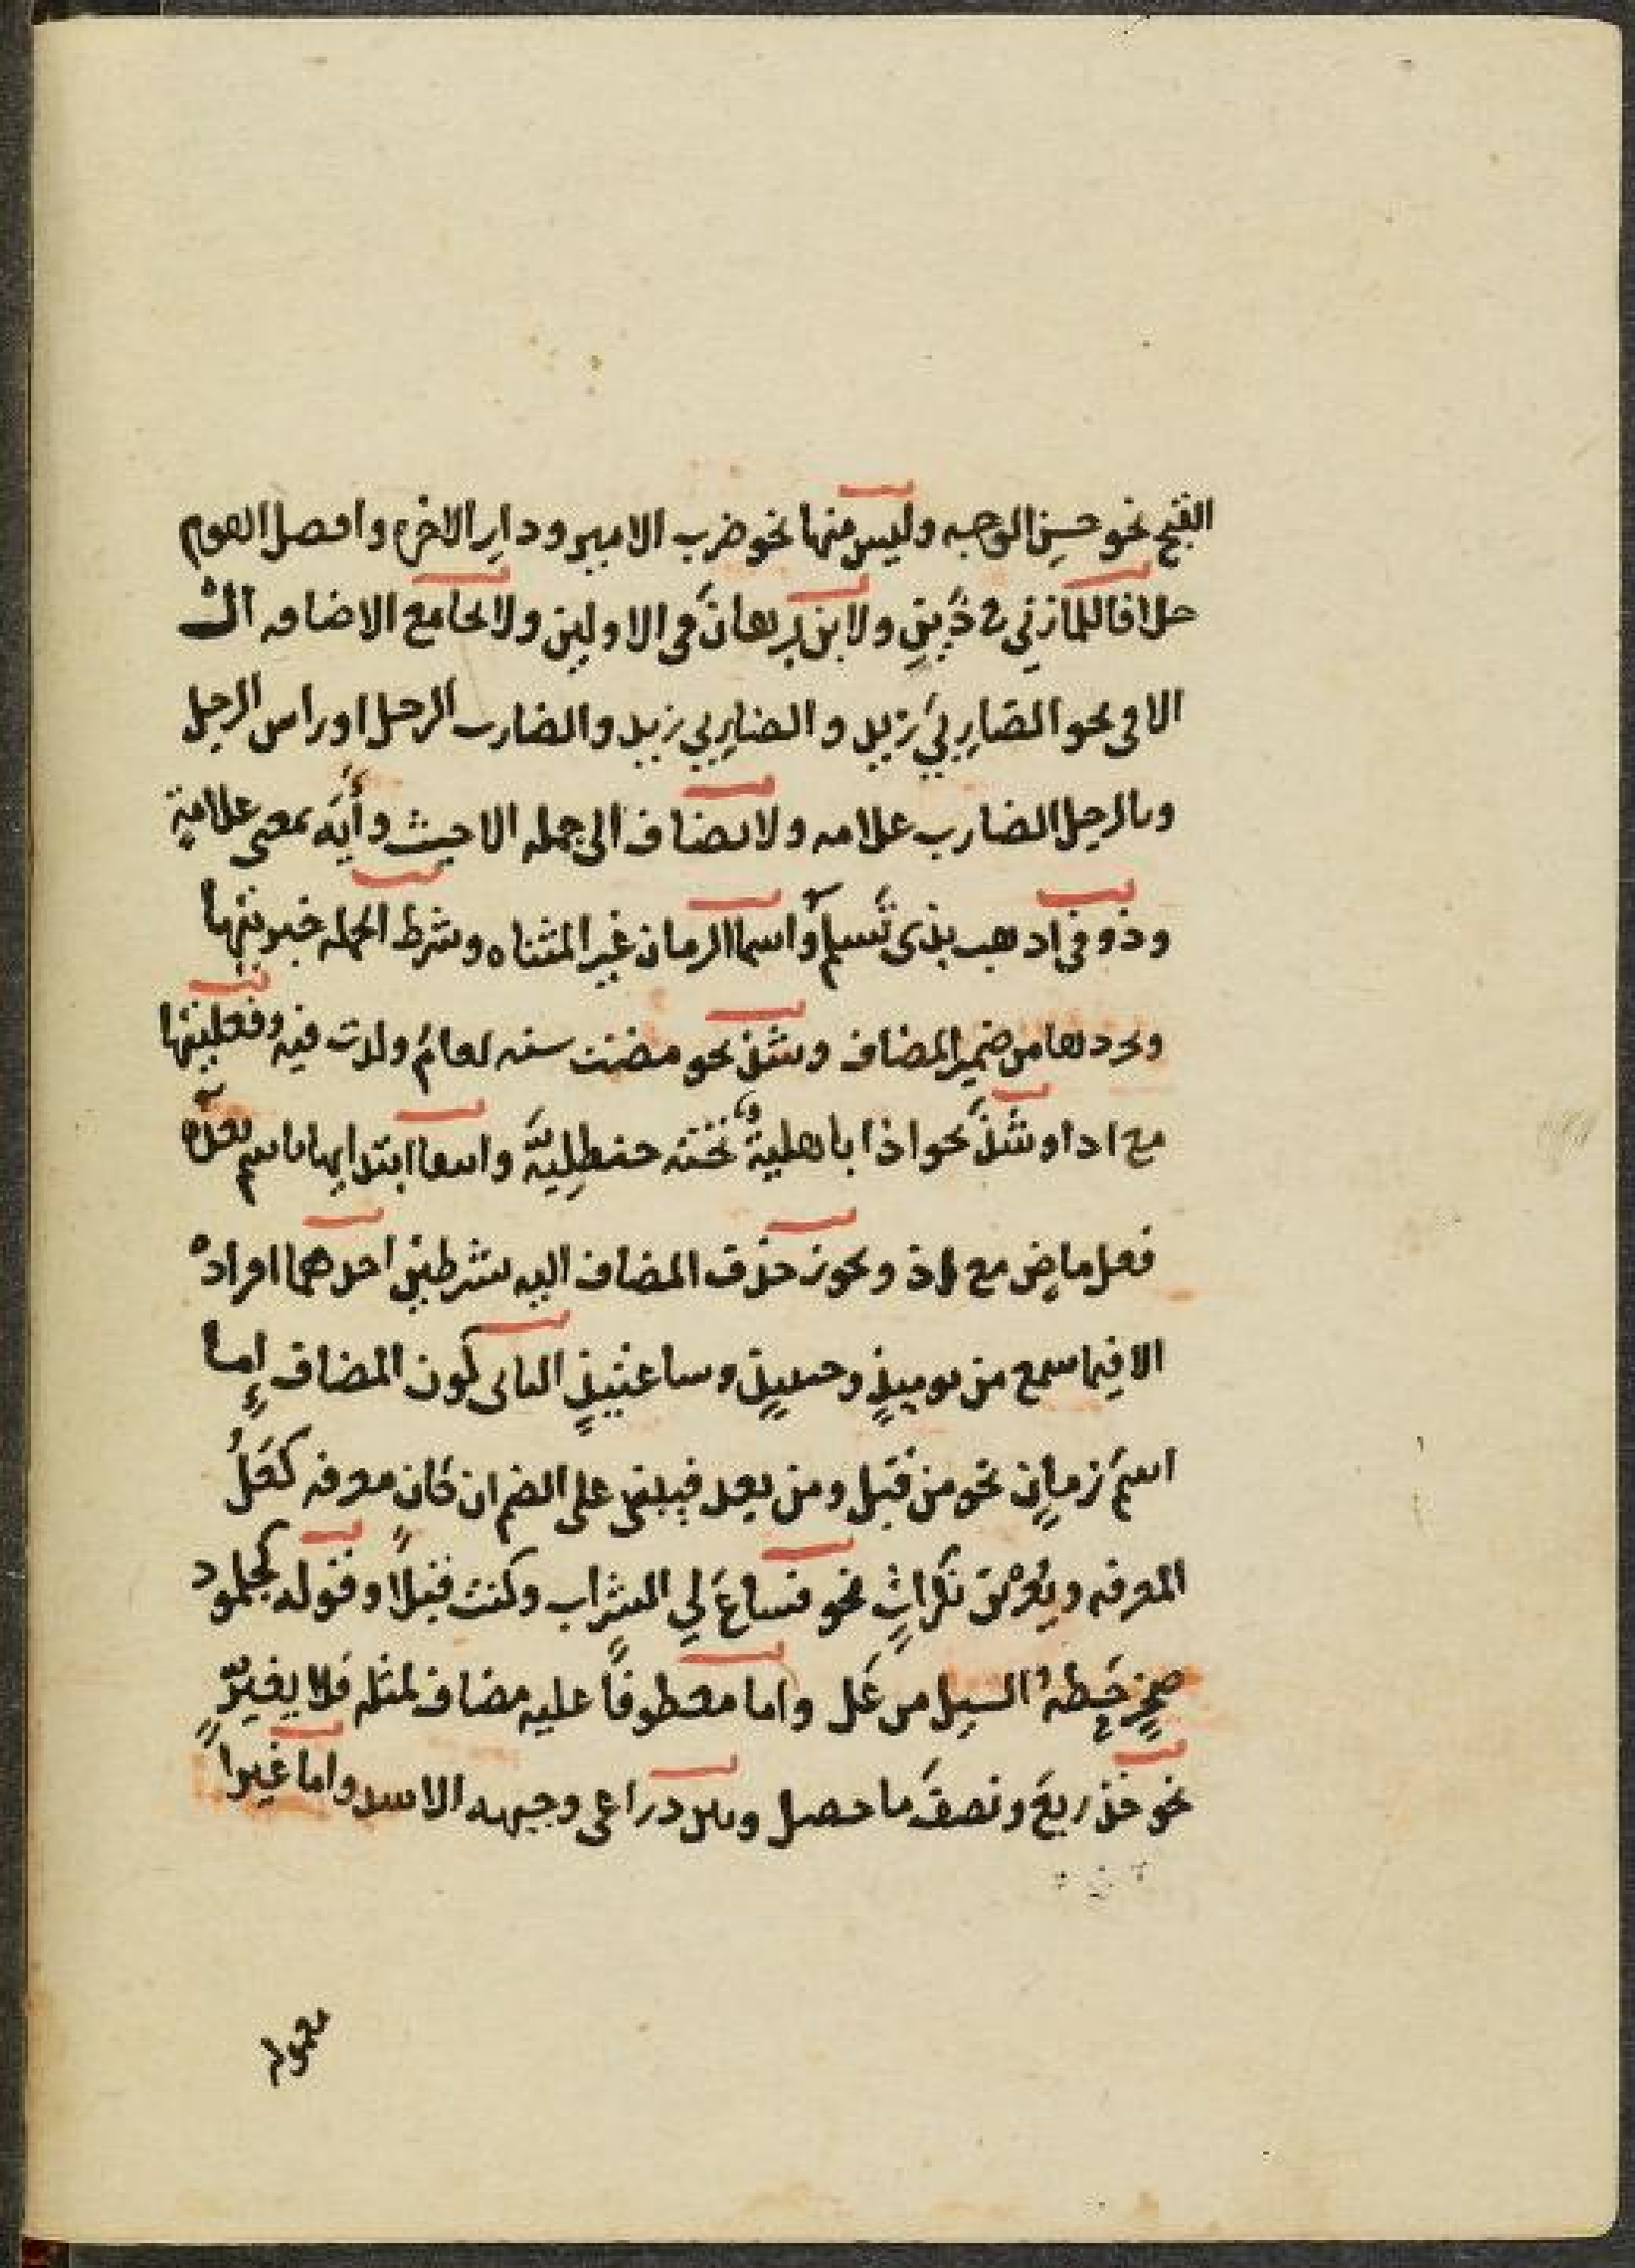 القبح نحو حسن الوجه وليس منها نحو ضرب الامير ودار الاخرة وافضل القوم
خلافا للمازني في ذين ولابن برهان في الاولين ولا تجامع الاضافه ال
الا في نحو الضاربي زيد والضاربي زيد والضارب الرجل او راس الرجل
وبالرجل الضارب غلامه ولا يضاف الى جمله الا حيث وآية بمعنى علامة
وذو في اذهب بذي تسلم واسما الزمان غير المثناه وشرط الجمله خبريتها
وتجردها من ضمير المضاف وشذ نحو مضت سنه لعام ولدت فيه وفعليتها
مع اذا وشذ نحو اذا باهلية تحته حنظلية وانها ابتدايها باسم بعده
فعل ماض مع اذ ويجوز حذف المضاف اليه بشرطين احدهما افراده
الا فيما سمع من يوميذ وحينيذ وساعتيذ الثاني كون المضاف إما
اسم زمان نحو من قبل ومن بعد فيبنى على الضم ان كان معرفه كعل
المعرفه ويعربن نكرات نحو فساغ لي الشراب وكنت قبلا وقوله كجلمود
صخر حطه السيل من عل واما معطوفا عليه مضاف لمثله فلا يغير
نحو خذ ربع ونصف ما حصل وبين ذراعي وجبهه الاسد واما غيرا